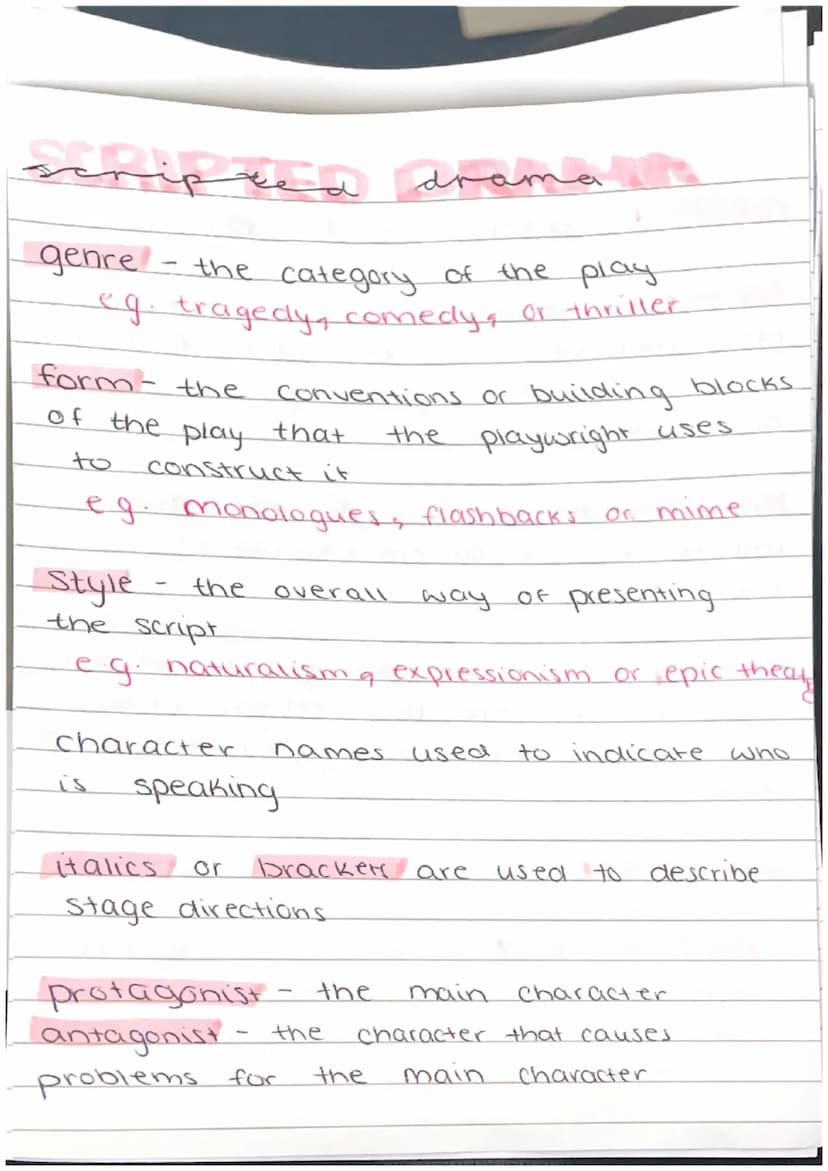 SCRIPTED DRAMA
scripted drama
genre - the category of the play
eg. tragedy, comedy, or thriller
form - the conventions or building blocks
of the play that the playwright uses
to construct it
eg. monologues, flashbacks or mime
Style - the overall way of presenting
the script
e.g. naturalism, expressionism or epic
character names used to indicate who
is speaking
italics or brackets are used to describe
stage directions
protagonist - the main character
antagonist - the character that causes
problems for the main character